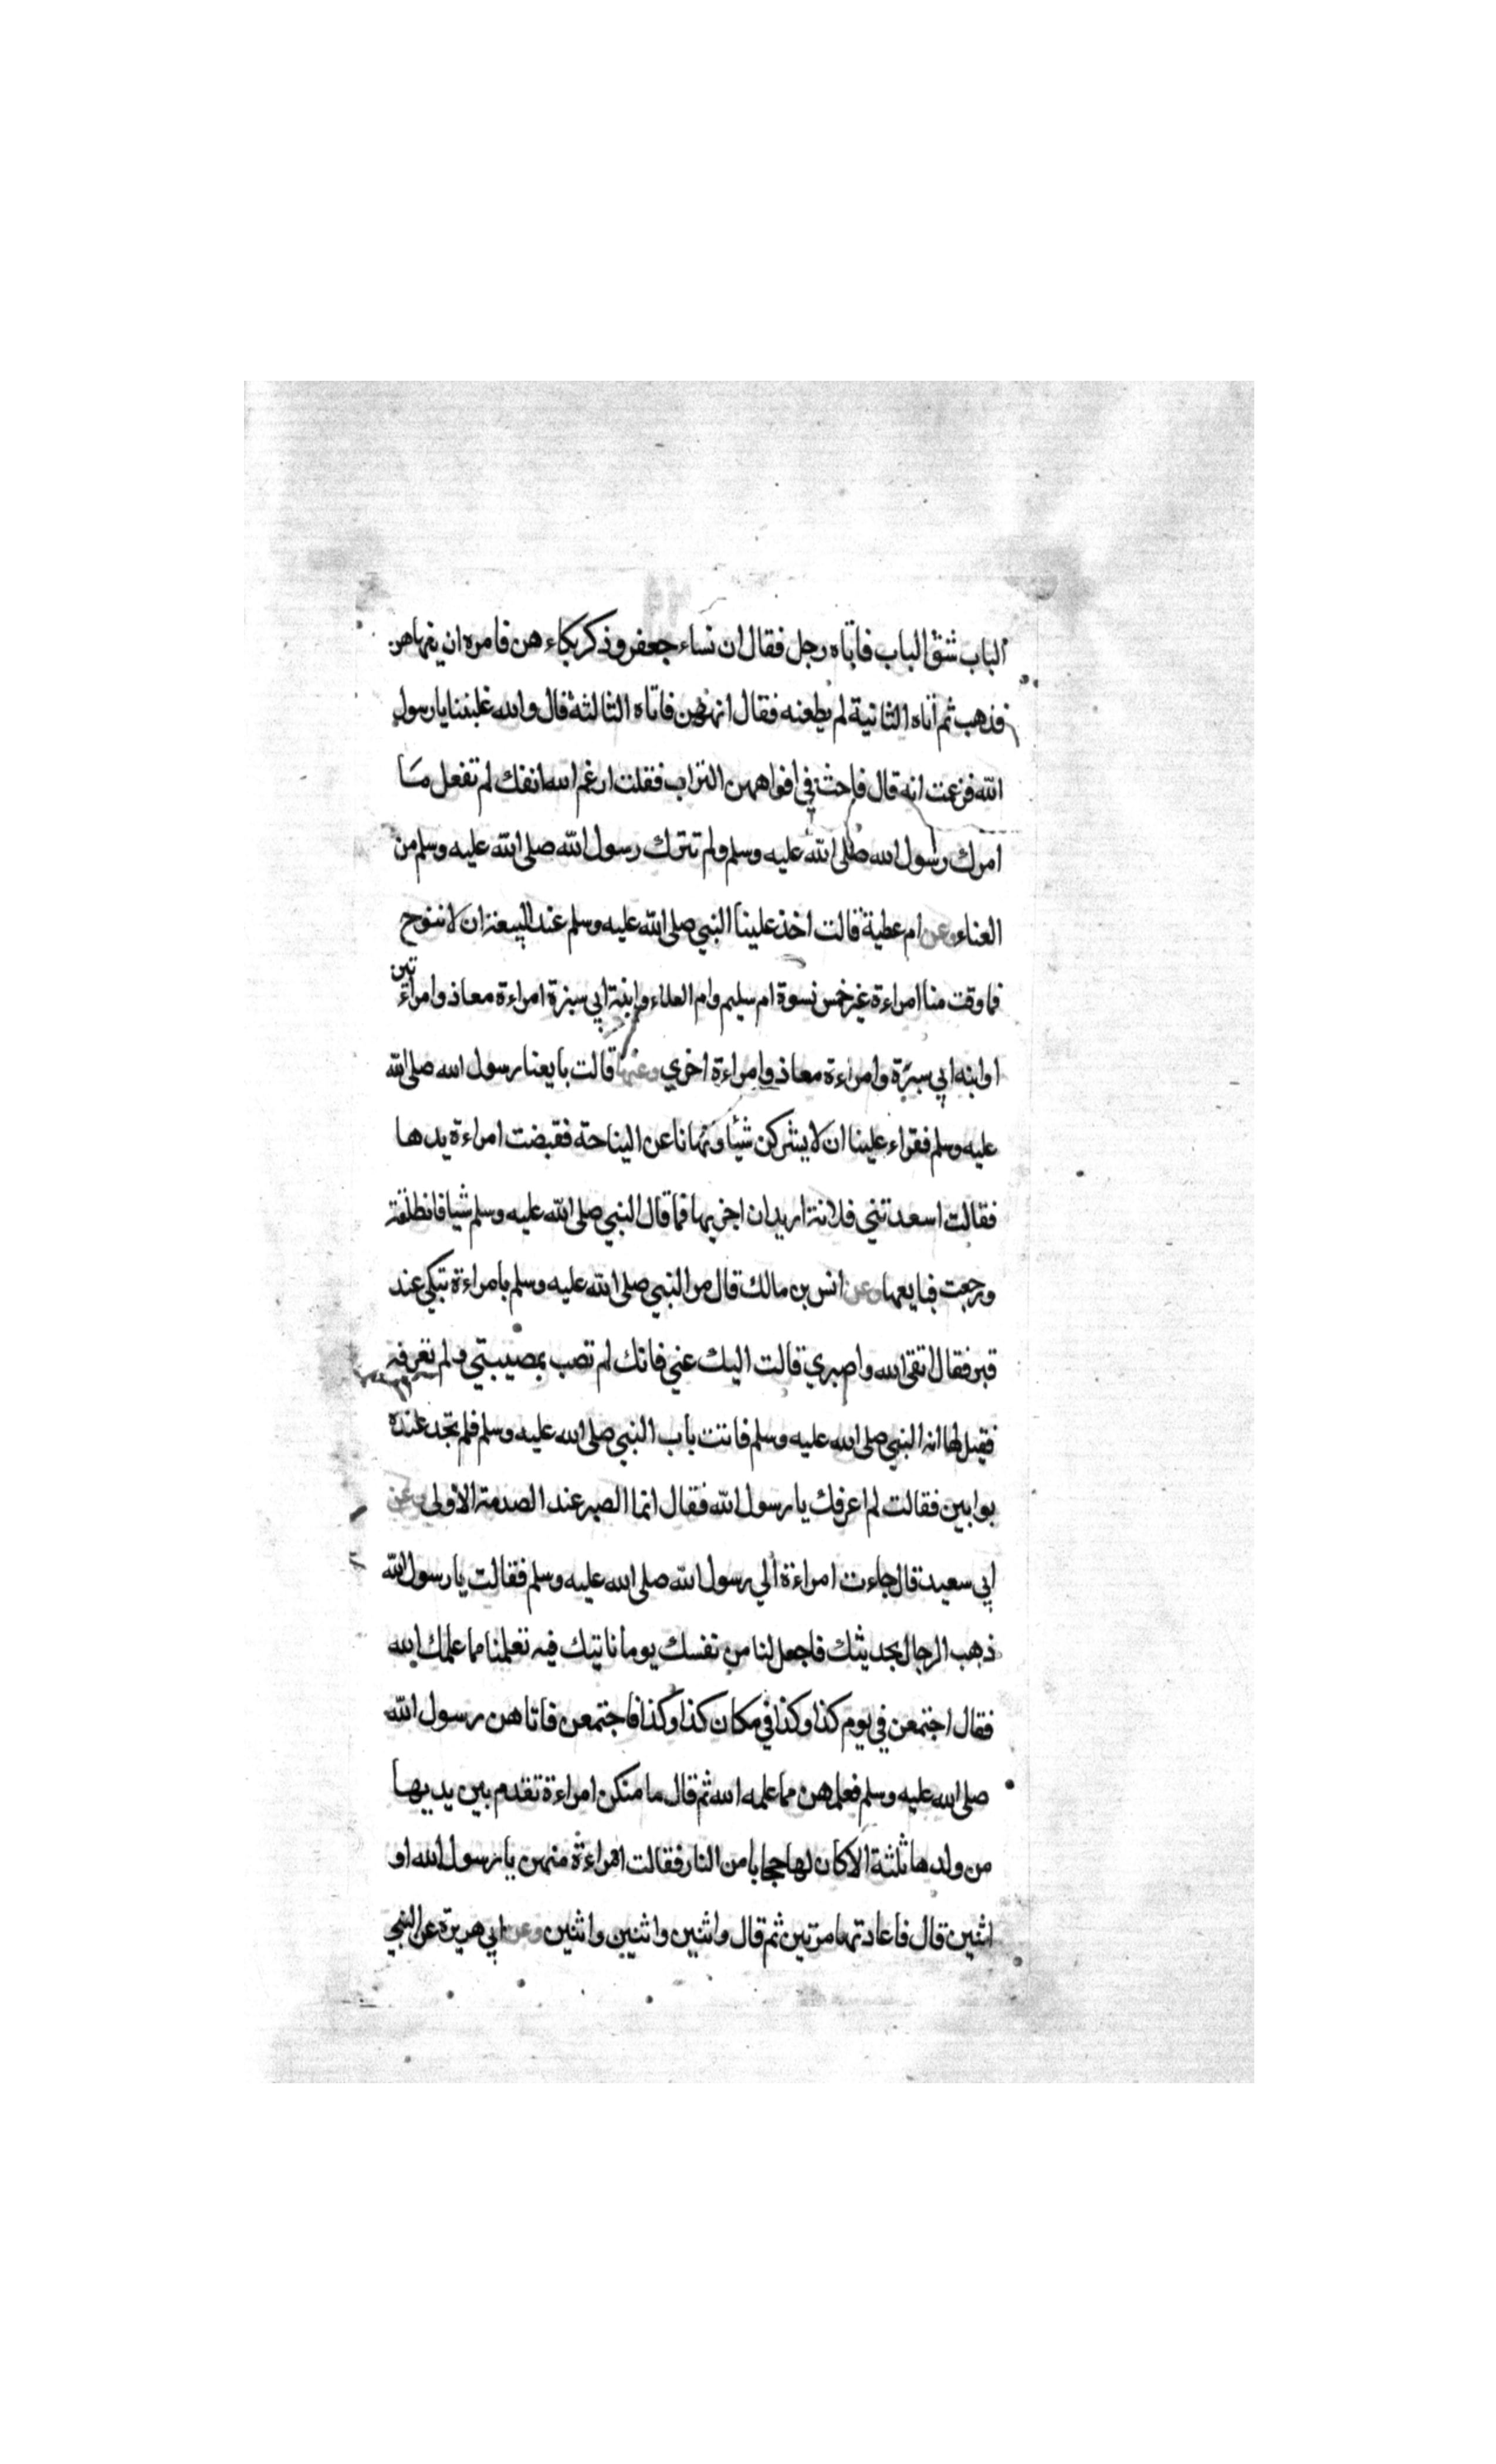 الباب شق الباب فاتاه رجل فقال ان نساء جعفر وذكر بكاءهن فامره ان ينهاهن
فذهب ثم أتاه الثانية لم يطعنه فقال انههن فاتاه الثالثة قال والله غلبننا يا رسول
الله فزعمت انه قال فاحث في افواههن التراب فقلت ارغم الله انفك لم تفعل مـا
امرك رسول الله صلى الله عليه وسلم ولم تترك رسول الله صلى الله عليه وسلم من
العناء وعن ام عطية قالت اخذ علينا النبي صلى الله عليه وسلم عند البيعة ان لا ننوح
فما وفت منا امراءة غير خمس نسوة ام سليم وام العلاء وابنة ابي سبرة امراءة معاذ وامراءتين
او ابنه ابي سبرة وامراءة معاذ وامراءة اخري وعنها قالت بايعنا رسول الله صلى الله
عليه وسلم فقراء علينا ان لا يشركن شيئا ونهانا عن النياحة فقبضت امراءة يدهـا
فقالت اسعدتني فلانة اريد ان اجزيها فما قال النبي صلى الله عليه وسلم شيا فانطلقت
ورجعت فبايعها وعن انس بن مالك قال مر النبي صلى الله عليه وسلم بامراءة تبكي عند
قبر فقال اتقى الله واصبري قالت اليك عني فانك لم تصب بمصيبتي ولم تعرفه
فقيل لها انه النبي صلى الله عليه وسلم فاتت باب النبي صلى الله عليه وسلم فلم تجد عنده
بوابين فقالت لم اعرفك يا رسول الله فقال انما الصبر عند الصدمة الاولى وعن
ابي سعيد قال جاءت امراءة الي رسول الله صلى الله عليه وسلم فقالت يا رسول الله
ذهب الرجال بحديثك فاجعل لنا من نفسك يوما ناتيك فيه تعلمنا مما علمك الله
فقال اجتمعن في يوم كذا وكذا في مكان كذا وكذا فاجتمعن فاتاهن رسول الله
صلى الله عليه وسلم فعلمهن مما علمه الله ثم قال ما منكن امراءة تقدم بين يديهـا
من ولدها ثلثة الا كان لها حجابا من النار فقالت امراءة منهن يا رسول الله او
اثنين قال فاعادتها مرتين ثم قال واثنين واثنين واثنين وعن ابي هريرة عن النبي